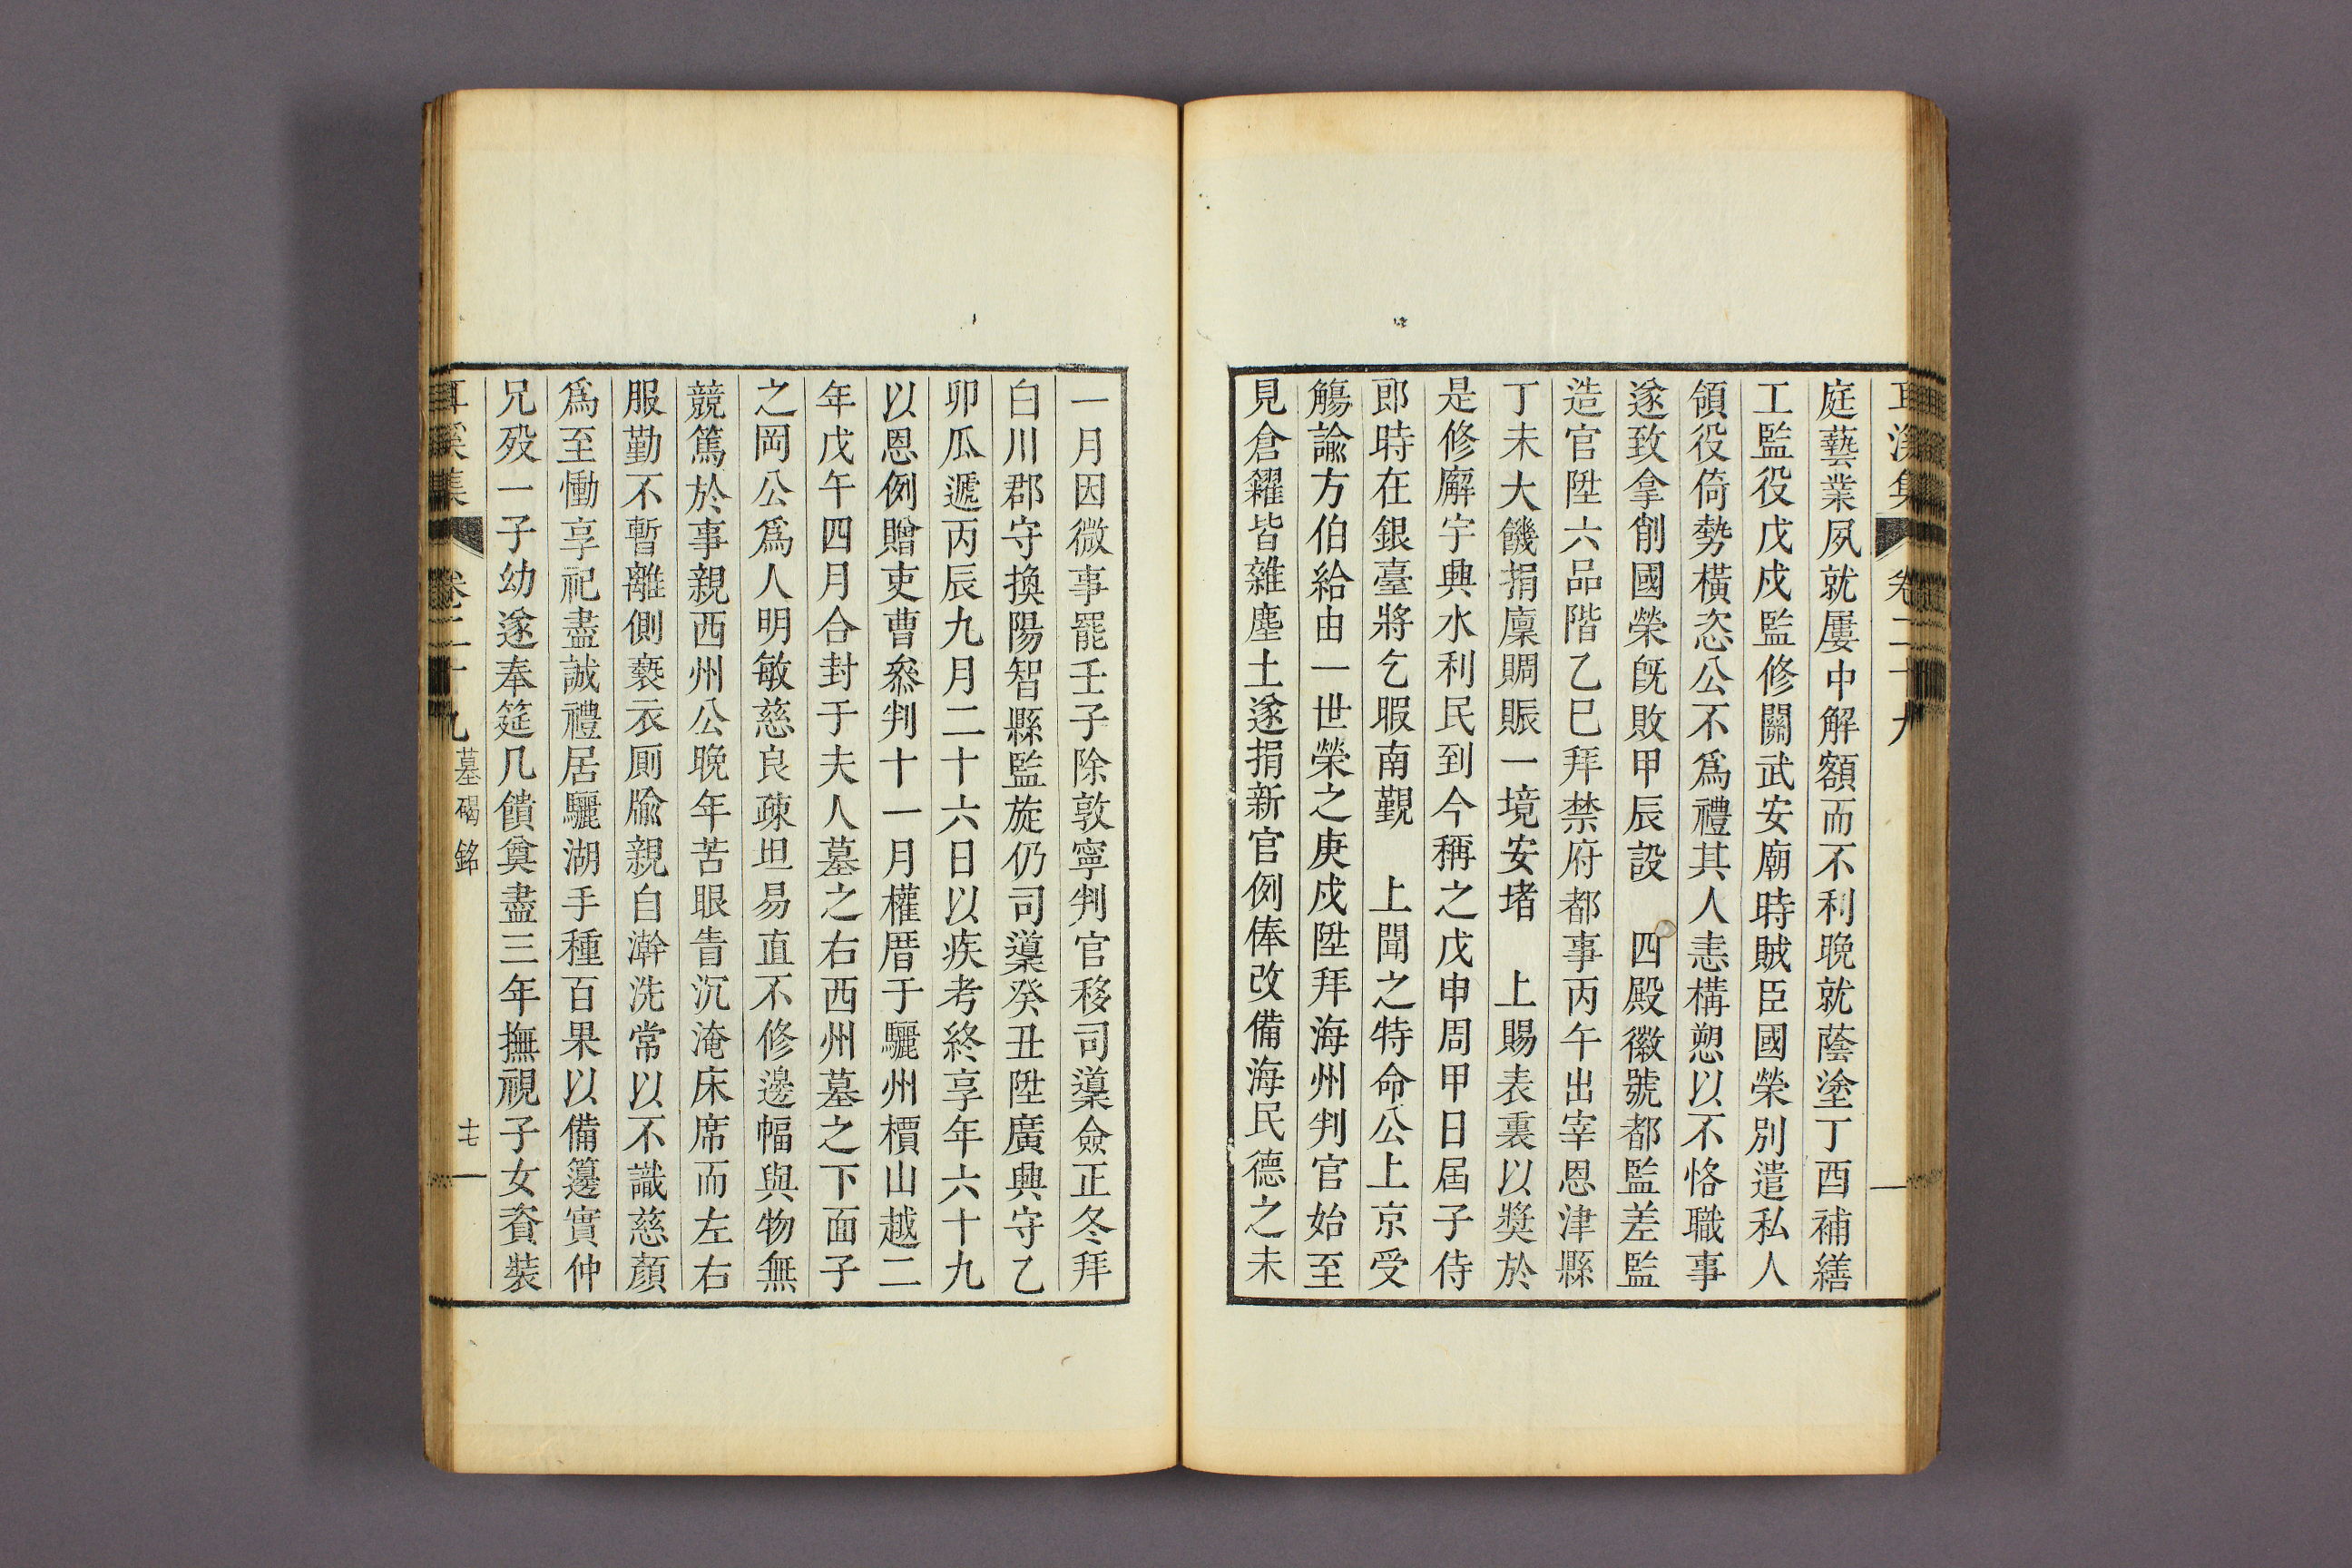 耳溪集 卷二十九
庭藝業夙就屢中解額而不利晩就蔭塗丁酉補繕
工監役戊戌監修關武安廟時賊臣國榮別遣私人
領役倚勢橫恣公不爲禮其人恚構愬以不恪職事
遂致拿削國榮旣敗甲辰設 四殿徽號都監差監
造官陞六品階乙巳拜禁府都事丙午出宰恩津縣
丁未大饑捐廩賙賑一境安堵 上賜表裏以奬於
是修廨宇興水利民到今稱之戊申周甲日屆子侍
郎時在銀臺將乞暇南覲 上聞之特命公上京受
觴諭方伯給由一世榮之庚戌陞拜海州判官始至
見倉糴皆雜塵土遂捐新官例俸改備海民德之未
一月因微事罷壬子除敦寧判官移司䆃僉正冬拜
白川郡守換陽智縣監旋仍司䆃癸丑陞廣興守乙
卯瓜遞丙辰九月二十六日以疾考終享年六十九
以恩例贈吏曹叅判十一月權厝于驪州檟山越二
年戊午四月合封于夫人墓之右西州墓之下面子
之岡公爲人明敏慈良疎坦易直不修邊幅與物無
競篤於事親西州公晩年苦眼眚沉淹床席而左右
服勤不暫離側褻衣厠牏親自澣洗常以不識慈顏
爲至慟享祀盡誠禮居驪湖手種百果以備籩實仲
兄歿一子幼遂奉筵几饋奠盡三年撫視子女資裝
耳溪集 卷二十九 墓碣銘 十七